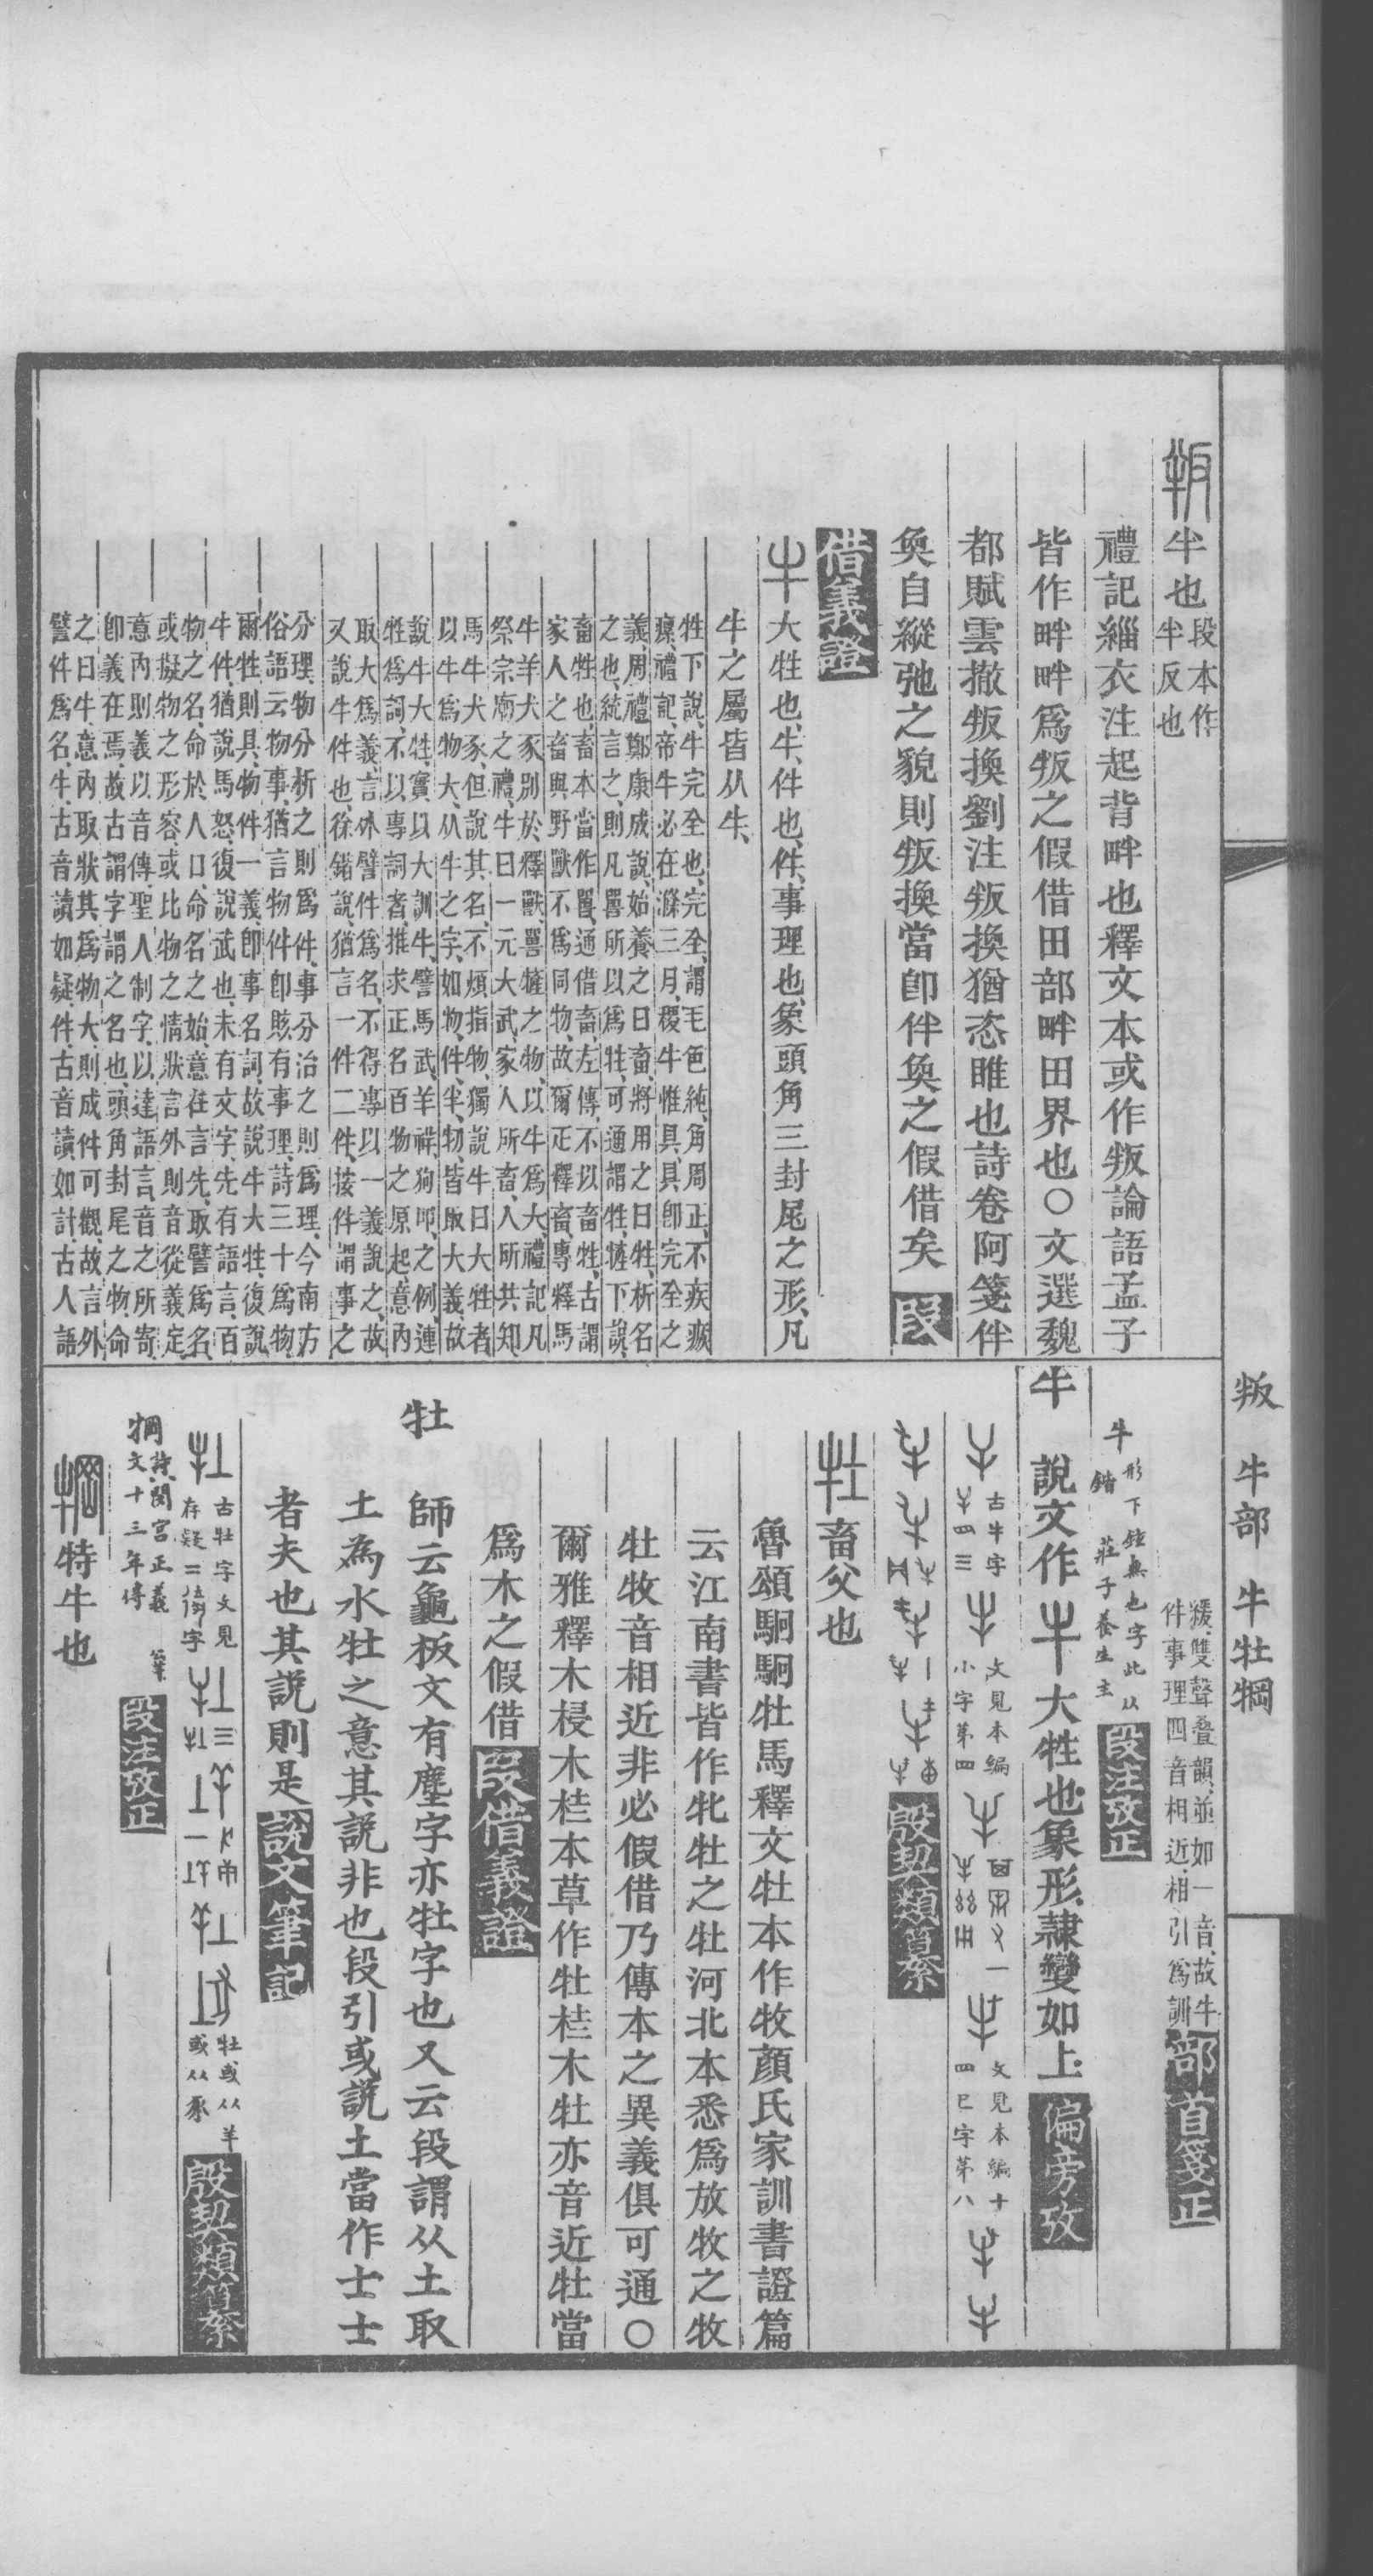 叛　牛部　牛牡犅
半也段本作
半反也
禮記緇衣注起背畔也釋文本或作叛論語孟子
皆作畔畔爲叛之假借田部畔田界也○文選魏
都賦雲撤叛換劉注叛換猶恣睢也詩卷阿箋伴
奐自縱弛之貌則叛換當卽伴奐之假借矣 段
借義證
大牲也、牛、件也、件、事理也、象頭角三封尾之形、凡
牛之屬皆从牛、
牲下說、牛完全也、完全、謂毛色純、角周正、不疾瘯
瘰、禮記、帝牛必在滌三月、稷牛惟具、具卽完全之
義、周禮鄭康成說、始養之曰畜、將用之曰牲、析名
之也、統言之、則凡嘼所以爲牲、可通謂牲、㹌下說、
畜牲也、畜本當作嘼、通借畜、左傳、不以畜牲、古謂
家人之畜與野獸不爲同物、故爾疋釋畜、專釋馬
牛羊犬豕、別於釋獸、嘼㹌之物、以牛爲大、禮記、凡
祭宗廟之禮、牛曰一元大武、家人所畜、人所共知、
馬牛犬豕、但說其名、不煩指物、獨說牛曰大牲者
以牛爲物大、从牛之字、如物、件、半、牣、皆取大義、故
說牛大牲、實以大訓牛、譬馬武、羊祥、狗叩、之例、連
牲爲詞、不以專詞者、推求正名百物之原起、意內
取大爲義、言外譬件爲名、不得專以一義說之、故
又說牛件也、徐鍇說猶言一件二件、按件謂事之
分理、物分析之則爲件、事分治之則爲理、今南方
俗語云物事、猶言物件、卽賅有事理、詩三十爲物、
爾牲則具、物件一義、卽事名詞、故說牛大牲、復說
牛件、猶說馬怒、復說武也、未有文字、先有語言、百
物之名、命於人口、命名之始、意在言先、取譬爲名、
或擬物之形容、或比物之情狀、言外則音從義定
意內則義以音傳、聖人制字、以達語言、音之所寄、
卽義在焉、故古謂字謂之名也、頭角封尾之物、命
之曰牛、意內取狀其爲物大、則成件可觀、故言外
譬件爲名、牛、古音讀如疑、件、古音讀如計、古人語
猨、雙聲疊韻、並如一音、故牛
件事理四音相近、相引爲訓 部首箋正
牛 形下鍇無也字此以
鍇 莊子養生主 段注攷正
牛 說文作 大牲也象形隸變如上 偏旁攷
古牛字
文見本編
小字第四
文見本編十
四巳字第八
殷契類纂
畜父也
魯頌駉駉牡馬釋文牡本作牧顏氏家訓書證篇
云江南書皆作牝牡之牡河北本悉爲放牧之牧
牡牧音相近非必假借乃傳本之異義俱可通○
爾雅釋木梫木桂本草作牡桂木牡亦音近牡當
爲木之假借 段借義證
牡 師云龜板文有麈字亦牡字也又云段謂从土取
土為水牡之意其說非也段引或說土當作士士
者夫也其說則是 說文筆記
古牡字文見
存疑
牡或从羊
或从豕 殷契類纂
犅 詩閟宮正義
文十三年傳 段注攷正
特牛也